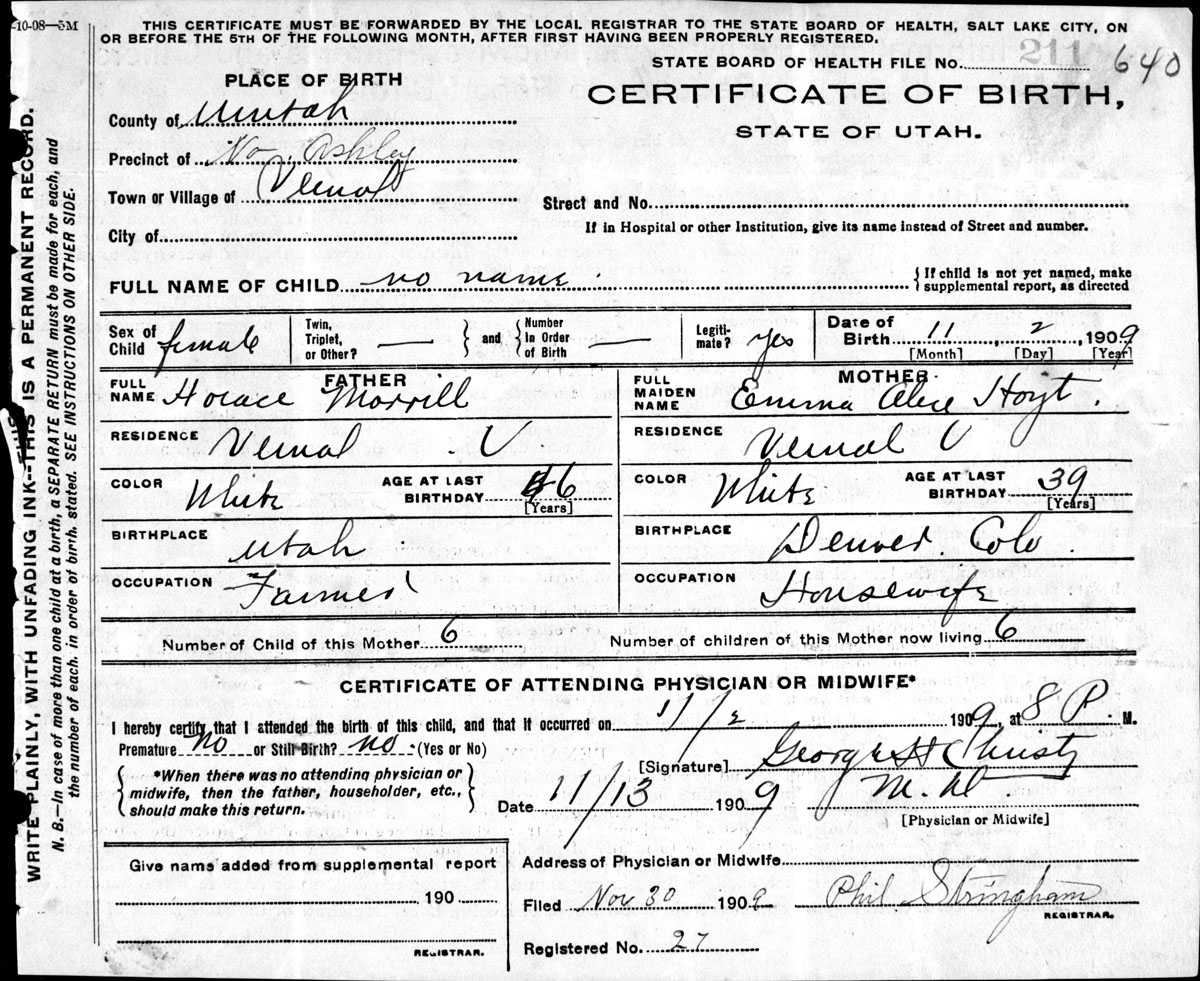 -10-08—5M
THIS CERTIFICATE MUST BE FORWARDED BY THE LOCAL REGISTRAR TO THE STATE BOARD OF HEALTH, SALT LAKE CITY, ON
OR BEFORE THE 5TH OF THE FOLLOWING MONTH, AFTER FIRST HAVING BEEN PROPERLY REGISTERED.
STATE BOARD OF HEALTH FILE No. 211 640
PLACE OF BIRTH
CERTIFICATE OF BIRTH,
STATE OF UTAH.
County of Uintah
Precinct of No. Ashley
Town or Village of Vernal
Street and No.
City of
If in Hospital or other Institution, give its name instead of Street and number.
FULL NAME OF CHILD no name {If child is not yet named, make
supplemental report, as directed
Sex of Child female
Twin, Triplet, or Other? — } and { Number In Order of Birth —
Legiti-mate? yes
Date of Birth 11, 2, 1909
[Month] [Day] [Year]
FATHER
FULL NAME Horace Morrill
RESIDENCE Vernal U.
COLOR White AGE AT LAST BIRTHDAY 46
[Years]
BIRTHPLACE Utah
OCCUPATION Farmer
MOTHER
FULL MAIDEN NAME Emma Alice Hoyt.
RESIDENCE Vernal U
COLOR White AGE AT LAST BIRTHDAY 39
[Years]
BIRTHPLACE Denver. Colo.
OCCUPATION Housewife
Number of Child of this Mother 6 Number of children of this Mother now living 6
CERTIFICATE OF ATTENDING PHYSICIAN OR MIDWIFE*
I hereby certify that I attended the birth of this child, and that it occurred on 11/2 1909, at 8 P. M.
Premature no or Still Birth? no. (Yes or No)
[Signature] George H Christy
{ *When there was no attending physician or
midwife, then the father, householder, etc.,
should make this return. }
Date 11/13 1909 M.D
[Physician or Midwife]
Give name added from supplemental report
190
REGISTRAR.
Address of Physician or Midwife
Filed Nov 30 1909 Phil Stringham
REGISTRAR.
Registered No. 27
WRITE PLAINLY, WITH UNFADING INK--THIS IS A PERMANENT RECORD.
N. B.—In case of more than one child at a birth, a SEPARATE RETURN must be made for each, and
the number of each, in order of birth, stated. SEE INSTRUCTIONS ON OTHER SIDE.